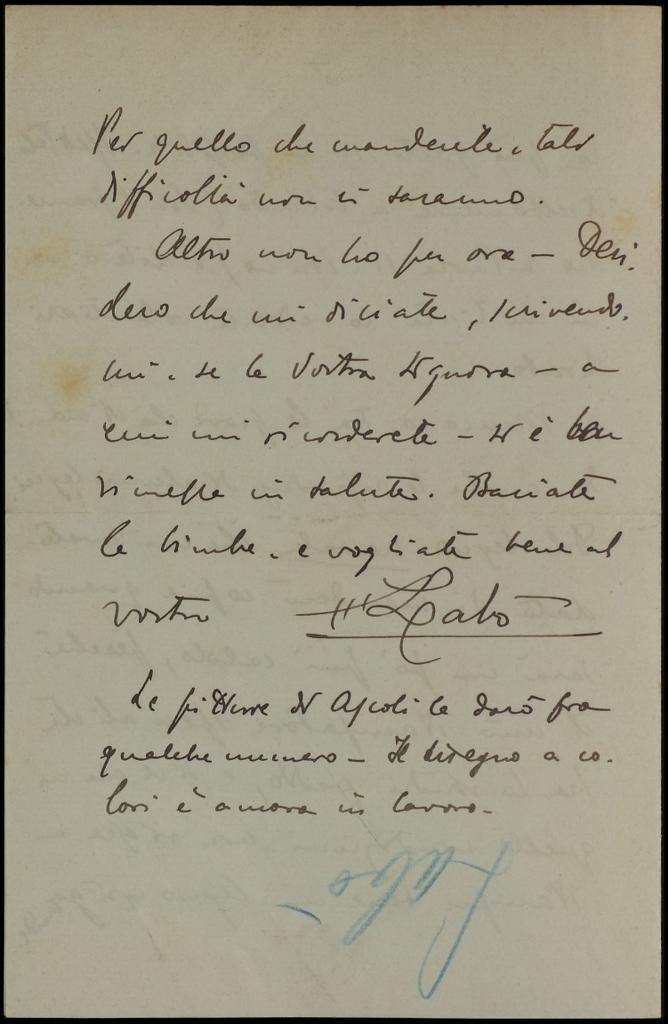 Per quello che manderete, tali
difficoltà non vi saranno.
Altro non ho per ora - Desi-
dero che mi diciate, scrivendo-
mi, se la Vostra Signora - a
cui mi ricorderete - si è ben
rimessa in salute. Baciate
le bimbe, e vogliate bene al
vostro Labò
Le pitture di Ascoli le darò fra
qualche numero - Il disegno a co-
lori è ancora in lavoro -
Labò